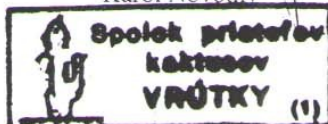 Spolok priateľov
kaktusov
VRÚTKY
(1)